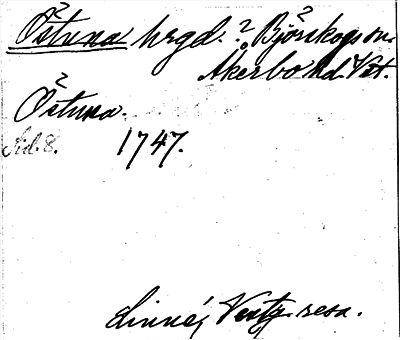 Östuna hrgd. ? Björskogs sn.
Åkerbo hd. Vst.
Östuna.
Sid. 8. 1747.
Linné, Vestg. resa.